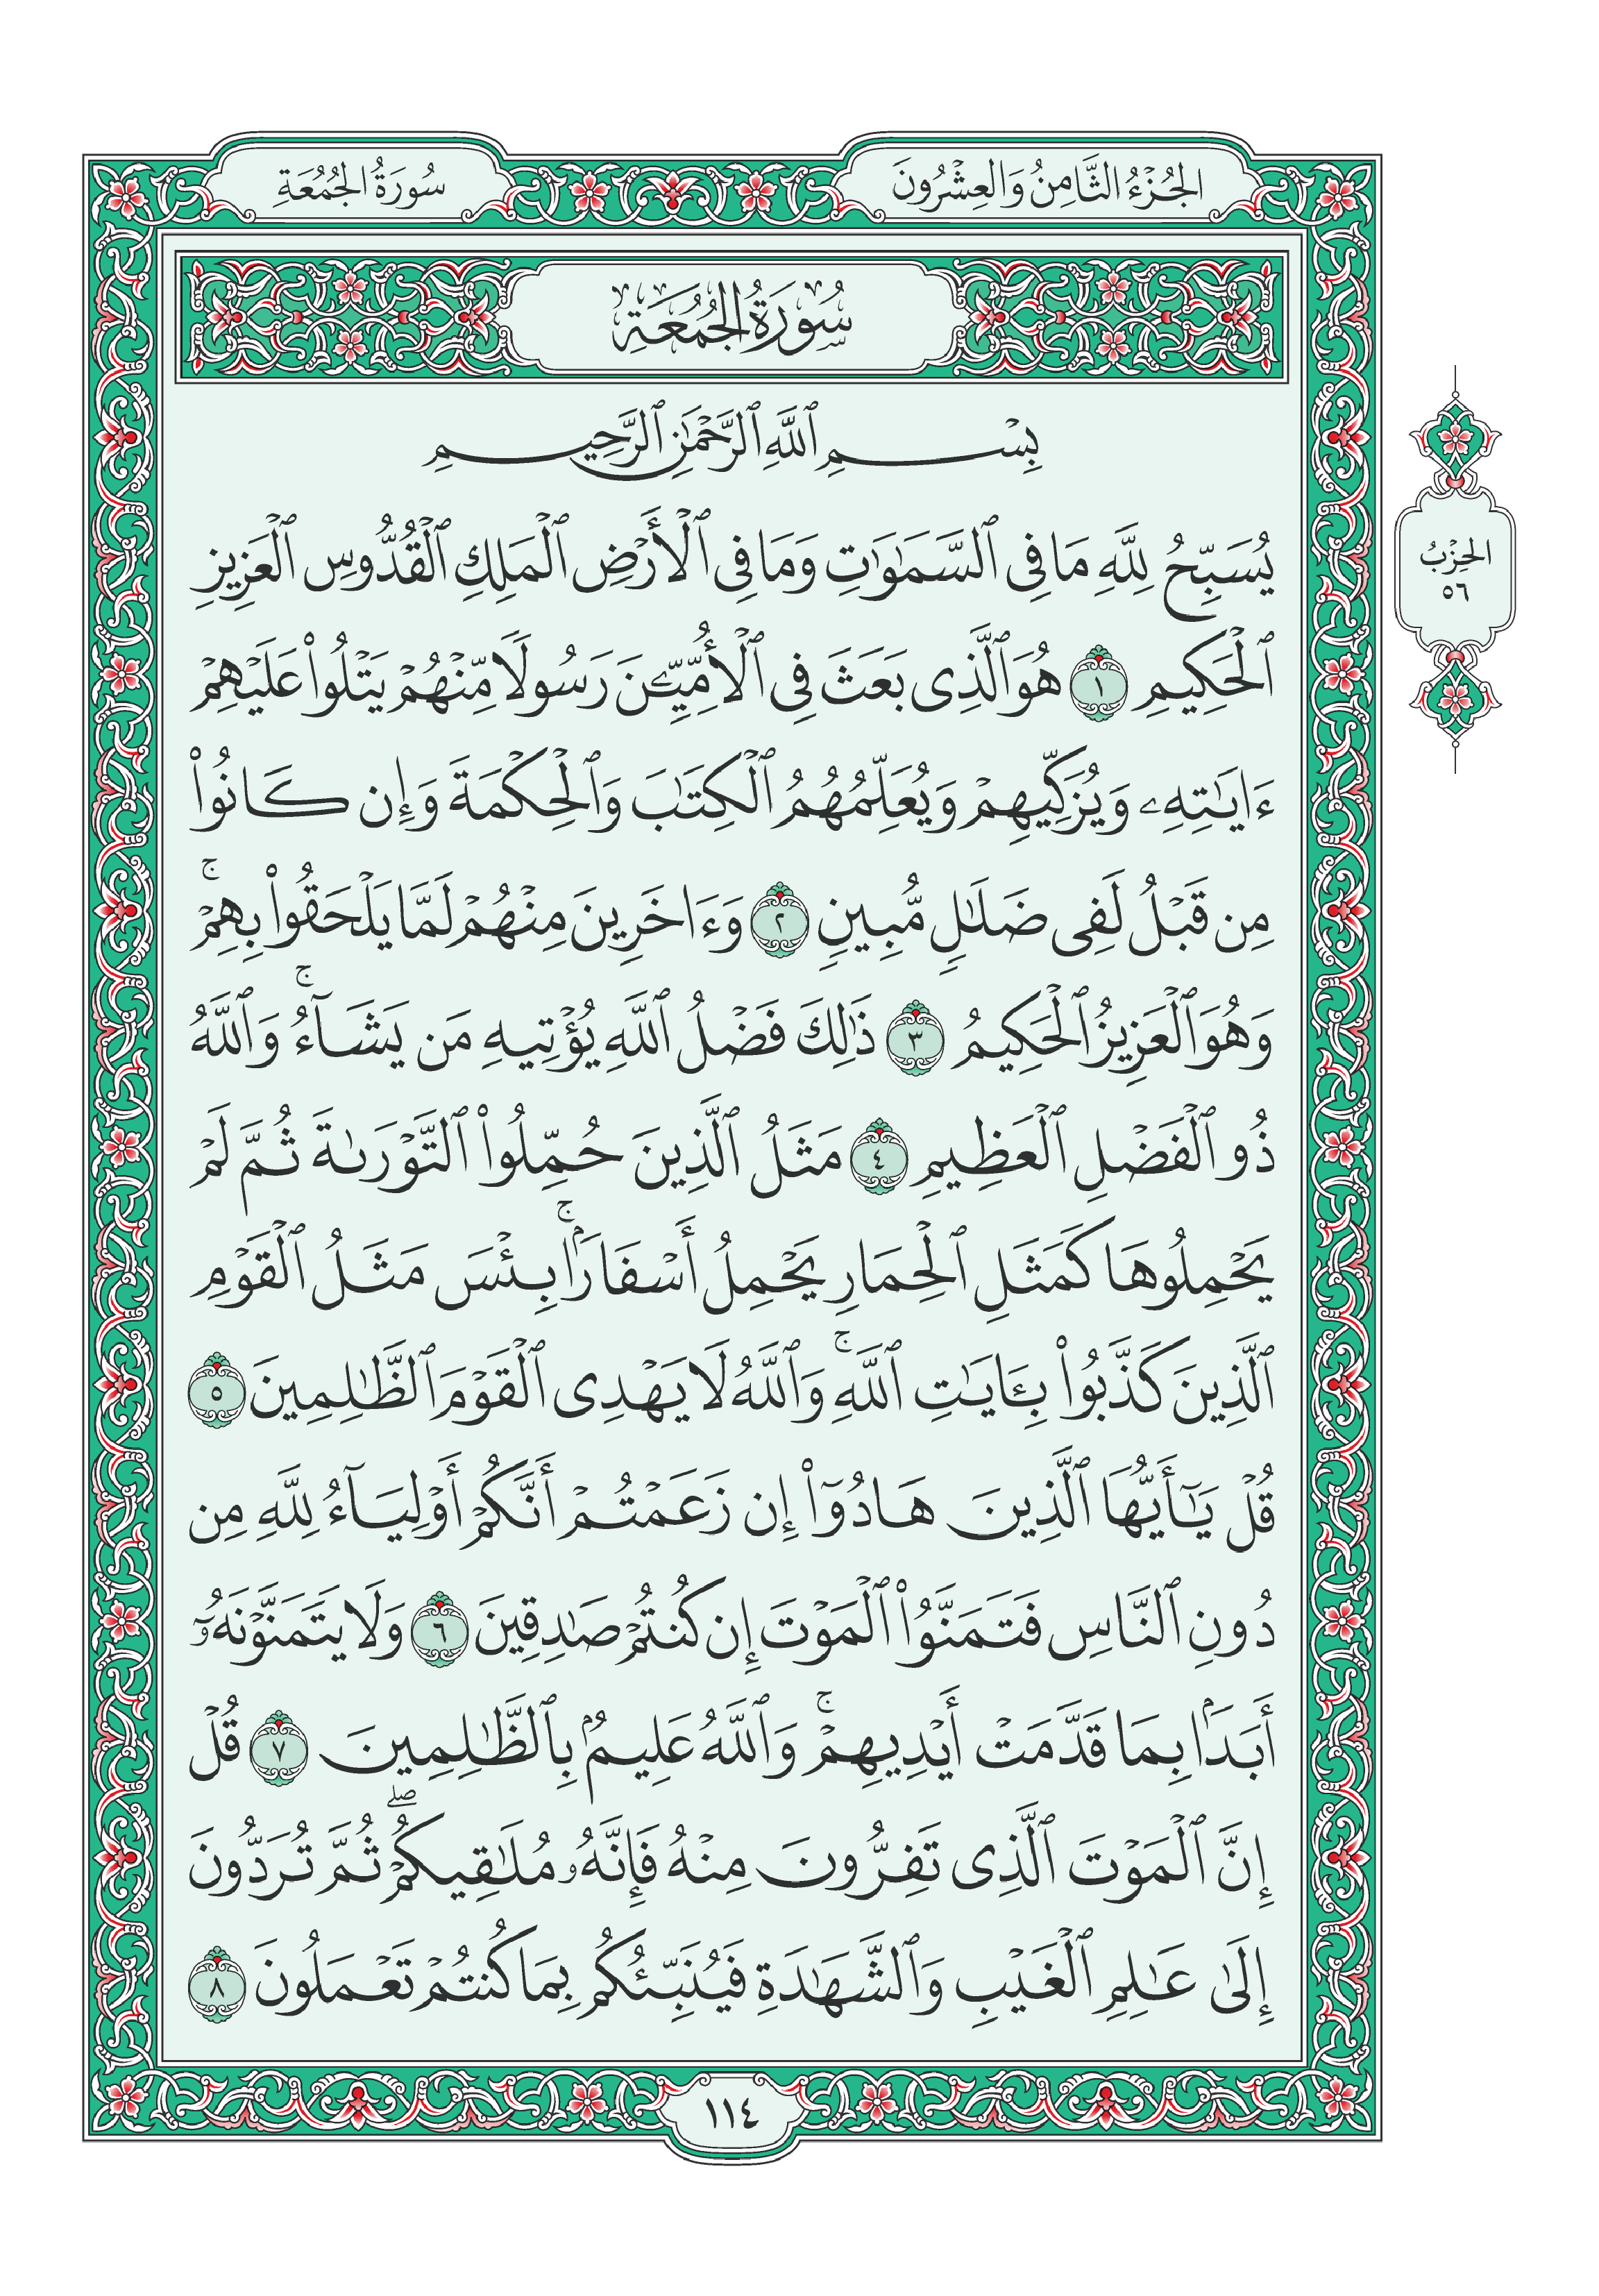 الجُزْءُ الثَّامِنُ وَالعِشْرُونَ
سُورَةُ الجُمُعَةِ
سُورَةُ الجُمُعَةِ
بِسْمِ ٱللَّهِ ٱلرَّحْمَٰنِ ٱلرَّحِيمِ
يُسَبِّحُ لِلَّهِ مَا فِي ٱلسَّمَٰوَٰتِ وَمَا فِي ٱلْأَرْضِ ٱلْمَلِكِ ٱلْقُدُّوسِ ٱلْعَزِيزِ
ٱلْحَكِيمِ ١ هُوَ ٱلَّذِي بَعَثَ فِي ٱلْأُمِّيِّـۧنَ رَسُولًا مِّنْهُمْ يَتْلُوا۟ عَلَيْهِمْ
ءَايَٰتِهِۦ وَيُزَكِّيهِمْ وَيُعَلِّمُهُمُ ٱلْكِتَٰبَ وَٱلْحِكْمَةَ وَإِن كَانُوا۟
مِن قَبْلُ لَفِي ضَلَٰلٍ مُّبِينٍ ٢ وَءَاخَرِينَ مِنْهُمْ لَمَّا يَلْحَقُوا۟ بِهِمْۚ
وَهُوَ ٱلْعَزِيزُ ٱلْحَكِيمُ ٣ ذَٰلِكَ فَضْلُ ٱللَّهِ يُؤْتِيهِ مَن يَشَآءُۚ وَٱللَّهُ
ذُو ٱلْفَضْلِ ٱلْعَظِيمِ ٤ مَثَلُ ٱلَّذِينَ حُمِّلُوا۟ ٱلتَّوْرَىٰةَ ثُمَّ لَمْ
يَحْمِلُوهَا كَمَثَلِ ٱلْحِمَارِ يَحْمِلُ أَسْفَارَۢاۚ بِئْسَ مَثَلُ ٱلْقَوْمِ
ٱلَّذِينَ كَذَّبُوا۟ بِـَٔايَٰتِ ٱللَّهِۚ وَٱللَّهُ لَا يَهْدِي ٱلْقَوْمَ ٱلظَّٰلِمِينَ ٥
قُلْ يَٰٓأَيُّهَا ٱلَّذِينَ هَادُوٓا۟ إِن زَعَمْتُمْ أَنَّكُمْ أَوْلِيَآءُ لِلَّهِ مِن
دُونِ ٱلنَّاسِ فَتَمَنَّوُا۟ ٱلْمَوْتَ إِن كُنتُمْ صَٰدِقِينَ ٦ وَلَا يَتَمَنَّوْنَهُۥٓ
أَبَدَۢا بِمَا قَدَّمَتْ أَيْدِيهِمْۚ وَٱللَّهُ عَلِيمُۢ بِٱلظَّٰلِمِينَ ٧ قُلْ
إِنَّ ٱلْمَوْتَ ٱلَّذِي تَفِرُّونَ مِنْهُ فَإِنَّهُۥ مُلَٰقِيكُمْۖ ثُمَّ تُرَدُّونَ
إِلَىٰ عَٰلِمِ ٱلْغَيْبِ وَٱلشَّهَٰدَةِ فَيُنَبِّئُكُم بِمَا كُنتُمْ تَعْمَلُونَ ٨
الحِزْبُ
٥٦
١١٤